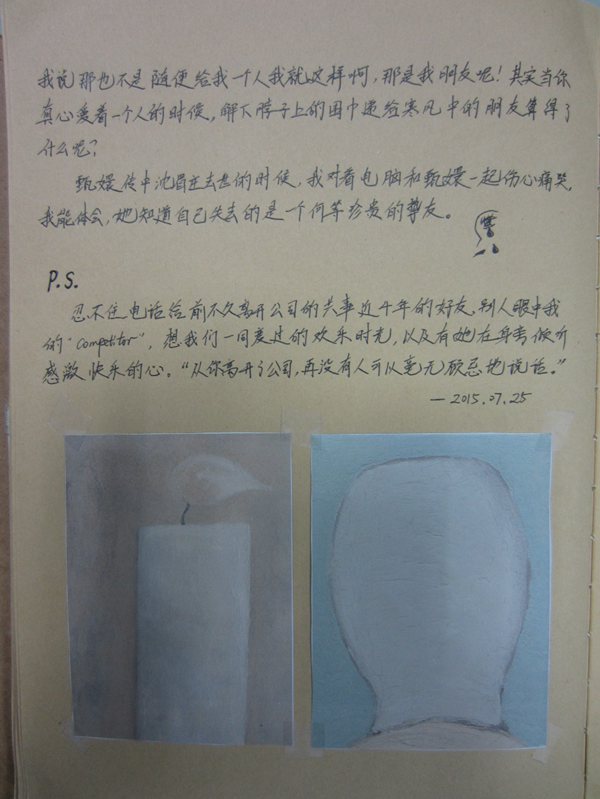 我说那也不是随便给我一个人我就这样啊，那是我朋友呢！其实当你
真心爱着一个人的时候，解下脖子上的围巾递给寒风中的朋友算得了
什么呢？
甄嬛传中沈眉庄去世的时候，我对着电脑和甄嬛一起伤心痛哭，
我能体会，她知道自己失去的是一个何等珍贵的挚友。
P.S.
忍不住电话给前不久离开公司的共事近十年的好友，别人眼中我
的"competitor"，想我们一同度过的欢乐时光，以及有她在身旁倾听
感激快乐的心。"从你离开公司，再没有人可以毫无顾忌地说话。"
—2015.07.25